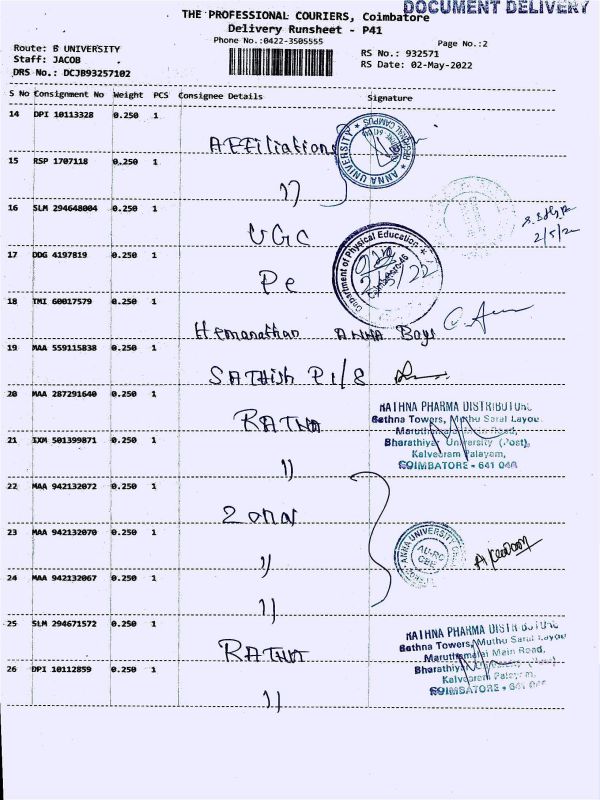 DOCUMENT DELIVERY
THE PROFESSIONAL COURIERS, Coimbatore
Delivery Runsheet - P41
Phone No.:0422-3505555
Page No.:2
Route: B UNIVERSITY
Staff: JACOB
DRS No.: DCJB93257102
RS No.: 932571
RS Date: 02-May-2022
S No Consignment No Weight PCS Consignee Details Signature
14 DPI 10113328 0.250 1
Affiliations
ANNA UNIVERSITY
REGIONAL CAMPUS
15 RSP 1707118 0.250 1
")
16 SLM 294648004 0.250 1
UGC
2/5/2
17 DDG 4197819 0.250 1
Pe
Department of Physical Education
Coimbatore-46
18 TMI 60017579 0.250 1
Hemanathan ANNA Boys
19 MAA 559115838 0.250 1
SATHish P1/8
20 MAA 287291640 0.250 1
RATNA
RATHNA PHARMA DISTRIBUTOR
Rathna Towers, Muthu Saral Layou
Road,
Bharathiyar University (Post),
Kalveeram Palayam,
COIMBATORE - 641 046
21 IXM 501399871 0.250 1
")
22 MAA 942132072 0.250 1
Zonal
23 MAA 942132070 0.250 1
")
ANNA UNIVERSITY
AU-RC
CBE
24 MAA 942132067 0.250 1
")
25 SLM 294671572 0.250 1
RATHNA
RATHNA PHARMA DISTRIBUTOR
Rathna Towers, Muthu Saral Layou
Maruthamalai Main Road,
Bharathiyar University (Post)
Kalveeram Palayam,
COIMBATORE - 641 046
26 DPI 10112859 0.250 1
")